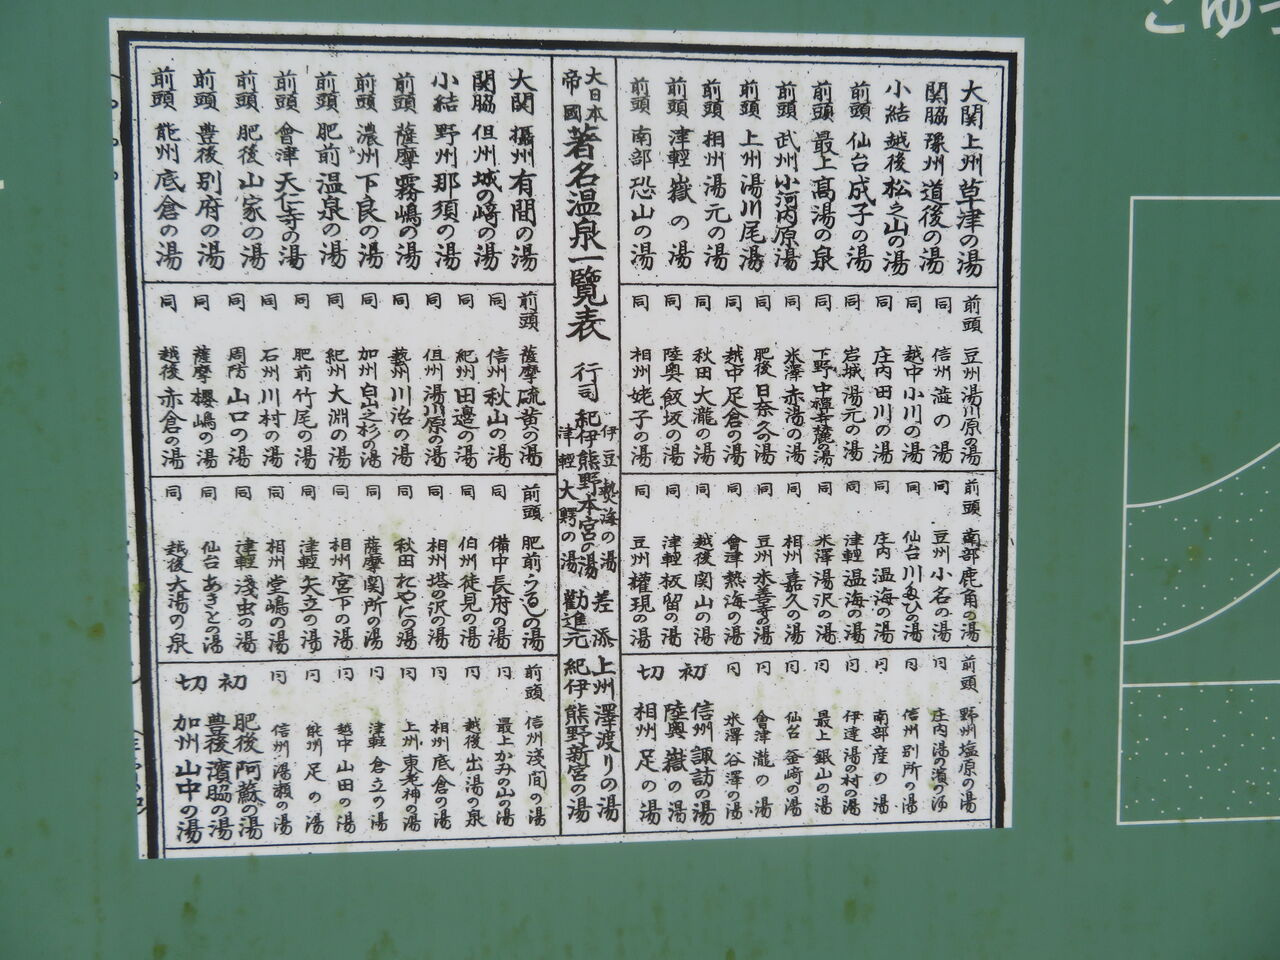 大関 上州草津の湯
関脇 豫州道後の湯
小結 越後松之山の湯
前頭 仙台成子の湯
前頭 最上高湯の泉
前頭 武州小河内原湯
前頭 上州湯川尾湯
前頭 相州湯元の湯
前頭 津軽嶽の湯
前頭 南部恐山の湯
前頭 豆州湯川原の湯
同 信州澁の湯
同 越中小川の湯
同 庄内田川の湯
同 岩城湯元の湯
同 下野中禅寺麓の湯
同 米澤赤湯の湯
同 肥後日奈久の湯
同 越中足倉の湯
同 秋田大瀧の湯
同 陸奥飯坂の湯
同 相州姥子の湯
前頭 南部鹿角の湯
同 豆州小名の湯
同 仙台川たびの湯
同 庄内温海の湯
同 津軽温海の湯
同 米澤湯沢の湯
同 相州嘉久の湯
同 豆州米善寺の湯
同 會津熱海の湯
同 越後関山の湯
同 津軽板留の湯
同 豆州權現の湯
前頭 野州塩原の湯
同 庄内湯の濱の湯
同 信州別所の湯
同 南部産の湯
同 伊達湯の村の湯
同 最上銀山の湯
同 仙台釜崎の湯
同 會津瀧の湯
同 米澤谷澤の湯
初 信州諏訪の湯
陸奥嶽の湯
切 相州足の湯
大日本帝國 著名温泉一覧表
行司
伊豆熱海の湯
紀伊熊野本宮の湯
津軽大鰐の湯
差添 上州澤渡りの湯
勧進元 紀伊熊野新宮の湯
大関 攝州有間の湯
関脇 但州城の崎の湯
小結 野州那須の湯
前頭 薩摩霧嶋の湯
前頭 濃州下良の湯
前頭 肥前温泉の湯
前頭 會津天仁寺の湯
前頭 肥後山家の湯
前頭 豊後別府の湯
前頭 能州底倉の湯
前頭 薩摩硫黄の湯
同 信州秋山の湯
同 紀州田邊の湯
同 但州湯川原の湯
同 藝州川治の湯
同 加州白山之杉の湯
同 紀州大淵の湯
同 肥前竹尾の湯
同 石州川村の湯
同 周防山口の湯
同 薩摩櫻嶋の湯
同 越後赤倉の湯
前頭 肥前うるしの湯
同 備中長府の湯
同 伯州徒見の湯
同 相州塔の沢の湯
同 秋田おやにの湯
同 薩摩関所の湯
同 相州宮下の湯
同 津軽矢立の湯
同 相州堂嶋の湯
同 津軽淺虫の湯
同 仙台あきとの湯
同 越後大湯の泉
前頭 信州淺間の湯
同 最上かみの山の湯
同 越後出湯の泉
同 相州底倉の湯
同 上州東老神の湯
同 津軽倉立の湯
同 越中山田の湯
同 能州足の湯
同 信州湯瀬の湯
初 肥後阿蘇の湯
豊後濱脇の湯
切 加州山中の湯